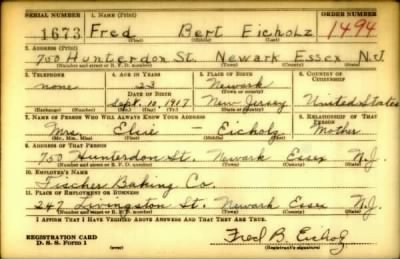 SERIAL NUMBER 1. NAME (Print) ORDER NUMBER
1673 Fred Bert Eicholz 1494
(First) (Middle) (Last)
2. ADDRESS (Print)
750 Hunterdon St. Newark Essex N.J.
(Number and street or R. F. D. number) (Town) (County) (State)
3. TELEPHONE 4. AGE IN YEARS 5. PLACE OF BIRTH 6. COUNTRY OF CITIZENSHIP
none 23 Newark
DATE OF BIRTH (Town or county)
Sept. 10, 1917 New Jersey United States
(Exchange) (No.) (Mo.) (Day) (Yr.) (State or country)
7. NAME OF PERSON WHO WILL ALWAYS KNOW YOUR ADDRESS 8. RELATIONSHIP OF THAT PERSON
Mrs. Elsie - Eicholz Mother
(Mr., Mrs., Miss) (First) (Middle) (Last)
9. ADDRESS OF THAT PERSON
750 Hunterdon St. Newark Essex N.J.
(Number and street or R. F. D. number) (Town) (County) (State)
10. EMPLOYER'S NAME
Fischer Baking Co.
11. PLACE OF EMPLOYMENT OR BUSINESS
247 Livingston St. Newark Essex N.J.
(Number and street or R. F. D. number) (Town) (County) (State)
I AFFIRM THAT I HAVE VERIFIED ABOVE ANSWERS AND THAT THEY ARE TRUE.
REGISTRATION CARD Fred B. Eicholz
D. S. S. Form 1 (Registrant's signature)